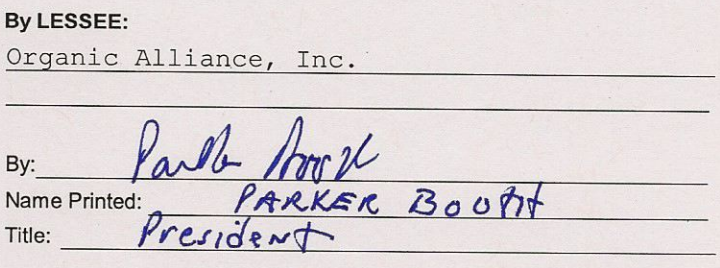 By LESSEE:
Organic Alliance, Inc.
By: Parker Booth
Name Printed: PARKER BOOTH
Title: President